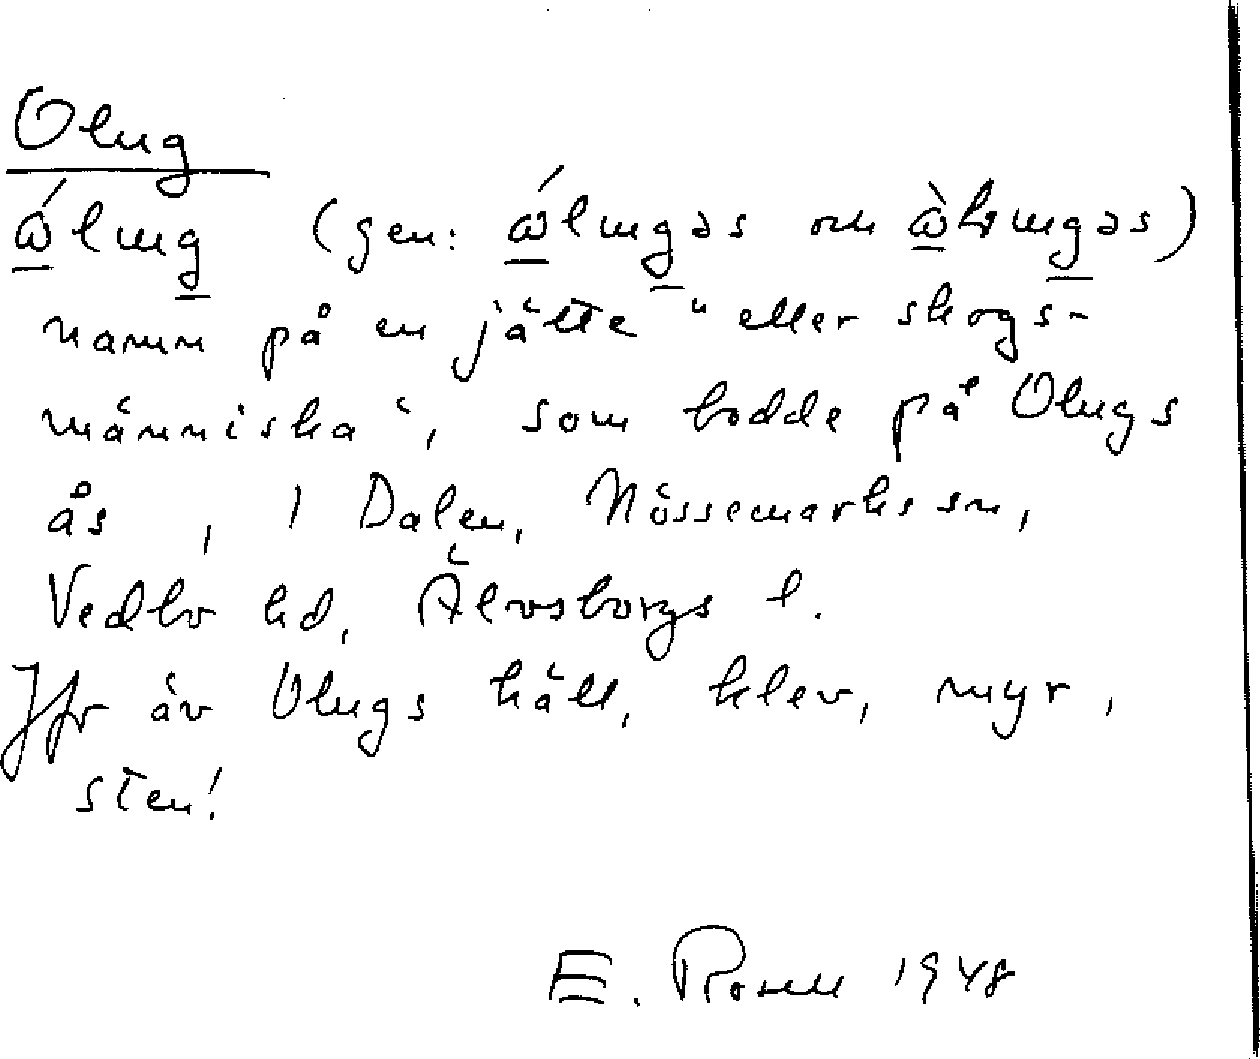 Olug
ώlung (gen: ώlungəs och ὼlvungəs)
namn på en jätte "eller skogs-
människa", som bodde på Olugs
ås, i Dalen, Nössemarks sn,
Vedbo hd, Älvsborgs l.
Jfr äv Olugs häll, klev, myr,
sten!
E. Rosell 1948